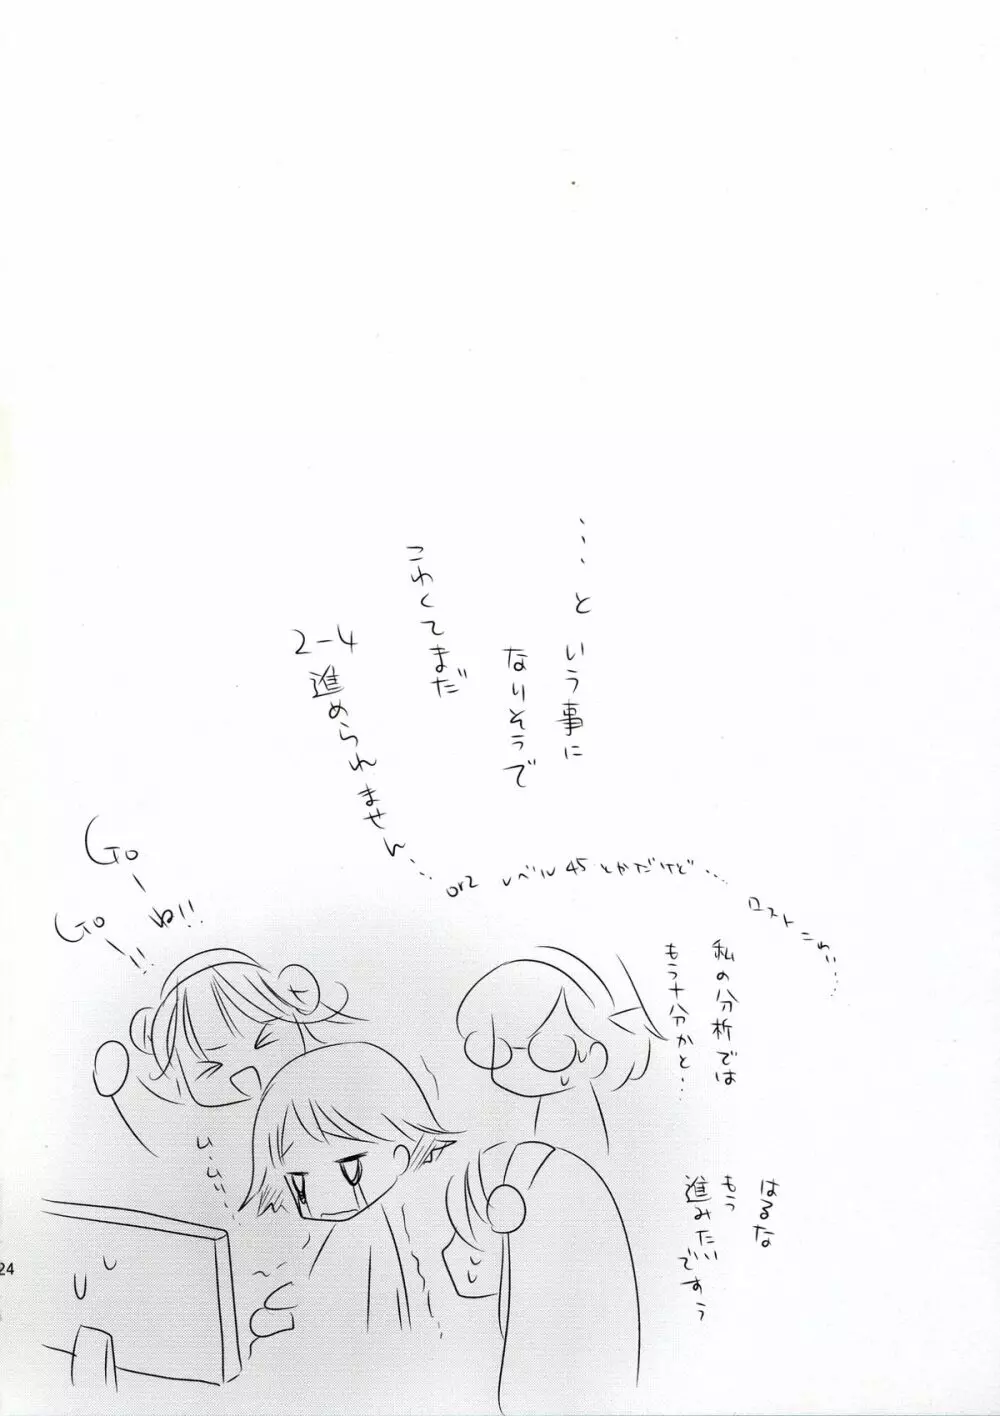 …と いう事に
なりそうで
こわくてまだ
2-4 進められません…
orz レベル45とかだけど… ロストこわい…
Go
Goーね!!
ー!!
私の分析では
もう十分かと…
はるな
もう
進みたいですぅ
24